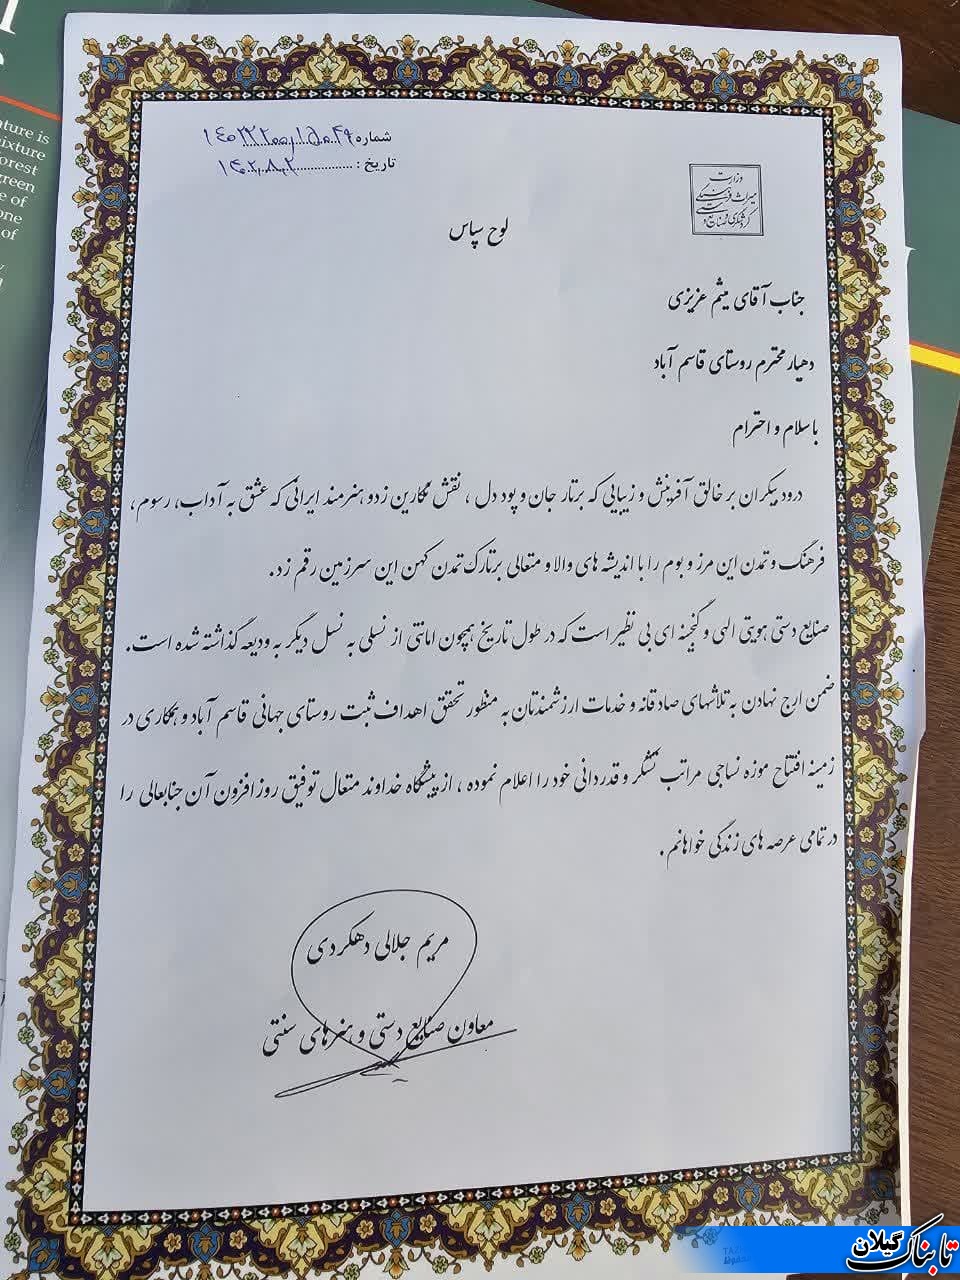 ature is
mixture
orest
green
e of
one
of
شماره
تاریخ :
وزارت
میراث فرهنگی
گردشگری و صنایع دستی
لوح سپاس
جناب آقای میثم عزیزی
دهیار محترم روستای قاسم آباد
با سلام و احترام
درود بیکران بر خالق آفرینش و زیبایی که بر تار جان و پود دل ، نقش نگارین زد و هنرمند ایرانی که عشق به آداب، رسوم،
فرهنگ و تمدن این مرز و بوم را با اندیشه های والا و متعالی بر تارک تمدن کهن این سرزمین رقم زد.
صنایع دستی هویتی الهی و گنجینه ای بی نظیر است که در طول تاریخ همچون امانتی از نسلی به نسل دیگر به ودیعه گذاشته شده است.
ضمن ارج نهادن به تلاشهای صادقانه و خدمات ارزشمندتان به منظور تحقق اهداف ثبت روستای جهانی قاسم آباد و همکاری در
زمینه افتتاح موزه نساجی مراتب تشکر و قدردانی خود را اعلام نموده ، از پیشگاه خداوند متعال توفیق روز افزون آن جنابعالی را
در تمامی عرصه های زندگی خواهانم .
مریم جلالی دهکردی
معاون صنایع دستی و هنرهای سنتی
تابناک گیلان